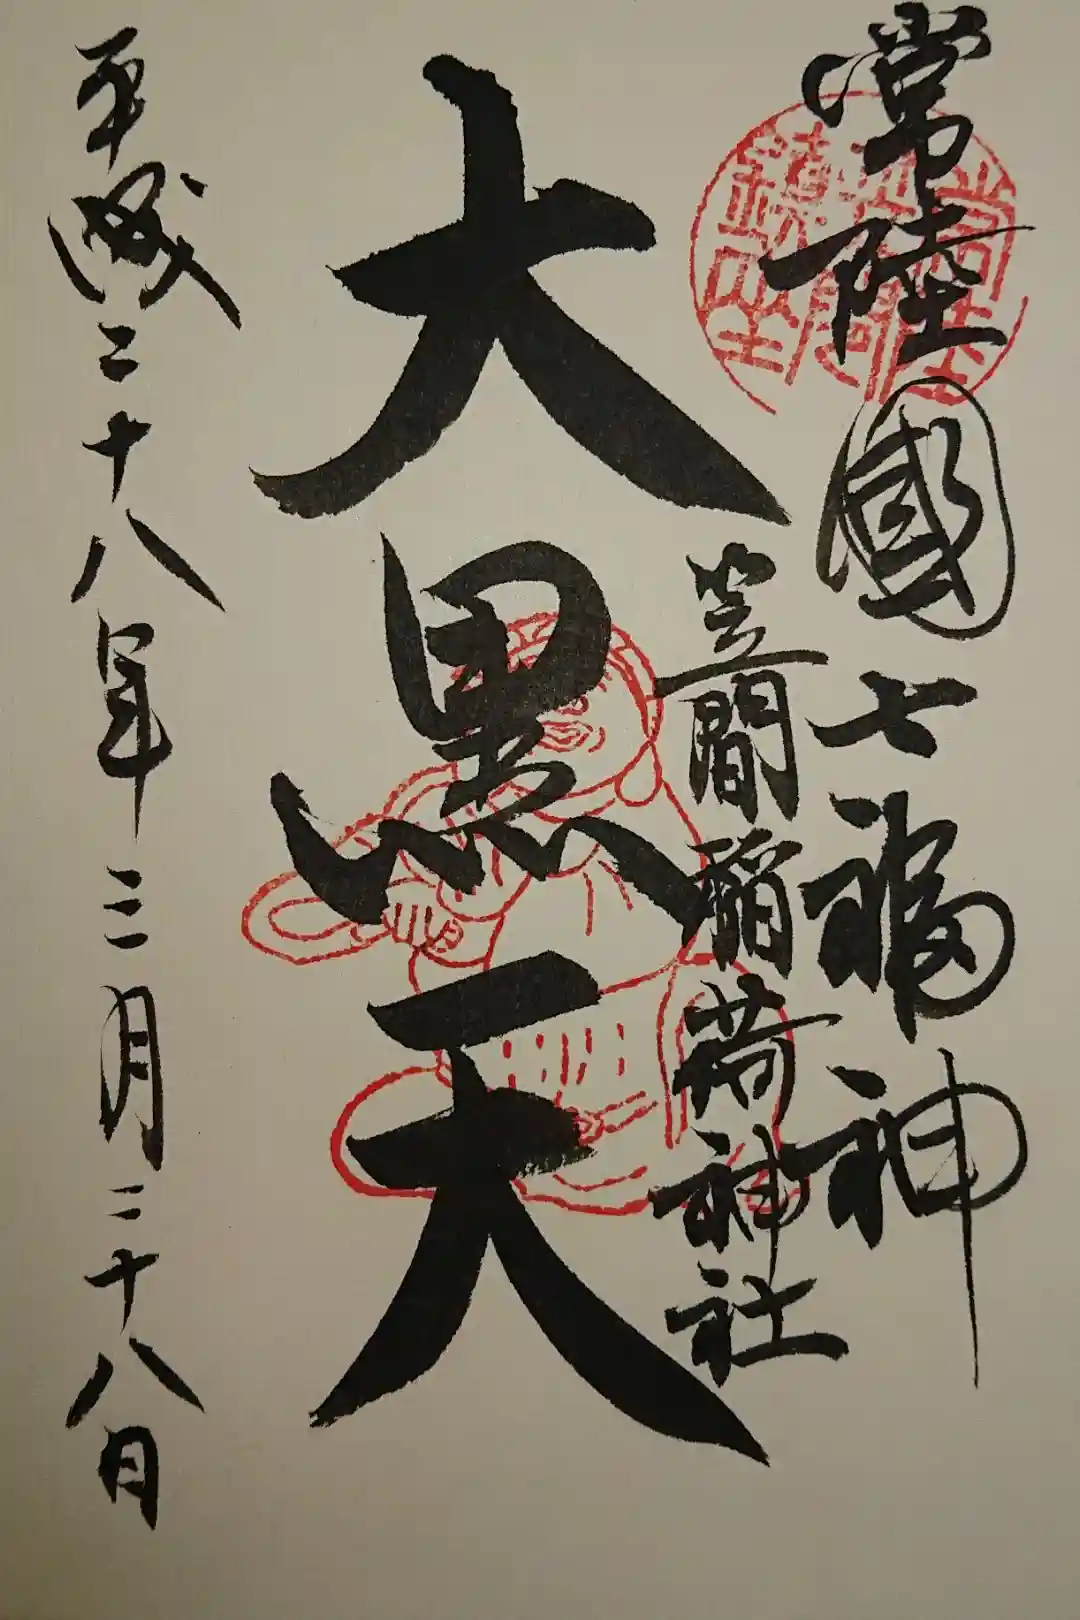 常陸國七福神
笠間稲荷神社
大黒天
平成二十八年三月二十八日